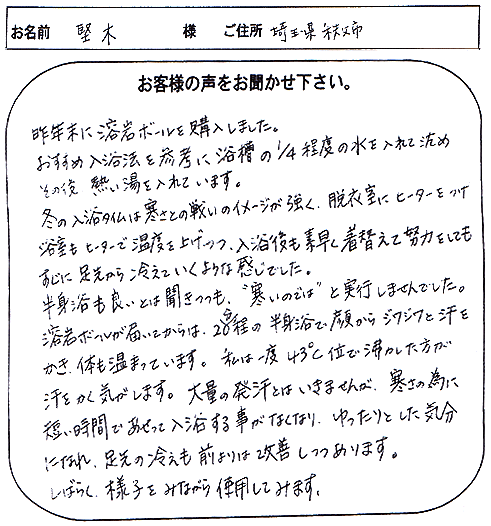 お名前 堅木 様 ご住所 埼玉県秩父市
お客様の声をお聞かせ下さい。
昨年末に溶岩ボールを購入しました。
おすすめ入浴法を参考に浴槽の1/4程度の水を入れて沈め
その後 熱い湯を入れています。
冬の入浴タイムは寒さとの戦いのイメージが強く、脱衣室にヒーターをつけ
浴室もヒーターで温度を上げつつ、入浴後も素早く着替えて努力をしても
すぐに足元から冷えていくような感じでした。
半身浴も良いとは聞きつつも、"寒いのでは"と実行しませんでした。
溶岩ボールが届いてからは、20分程の半身浴で顔からジワジワと汗を
かき、体も温まっています。 私は一度43℃位で沸かした方が
汗をかく気がします。大量の発汗とはいきませんが、寒さの為に
短い時間であせって入浴する事がなくなり、ゆったりとした気分
になれ、足元の冷えも前よりは改善しつつあります。
しばらく、様子をみながら使用してみます。